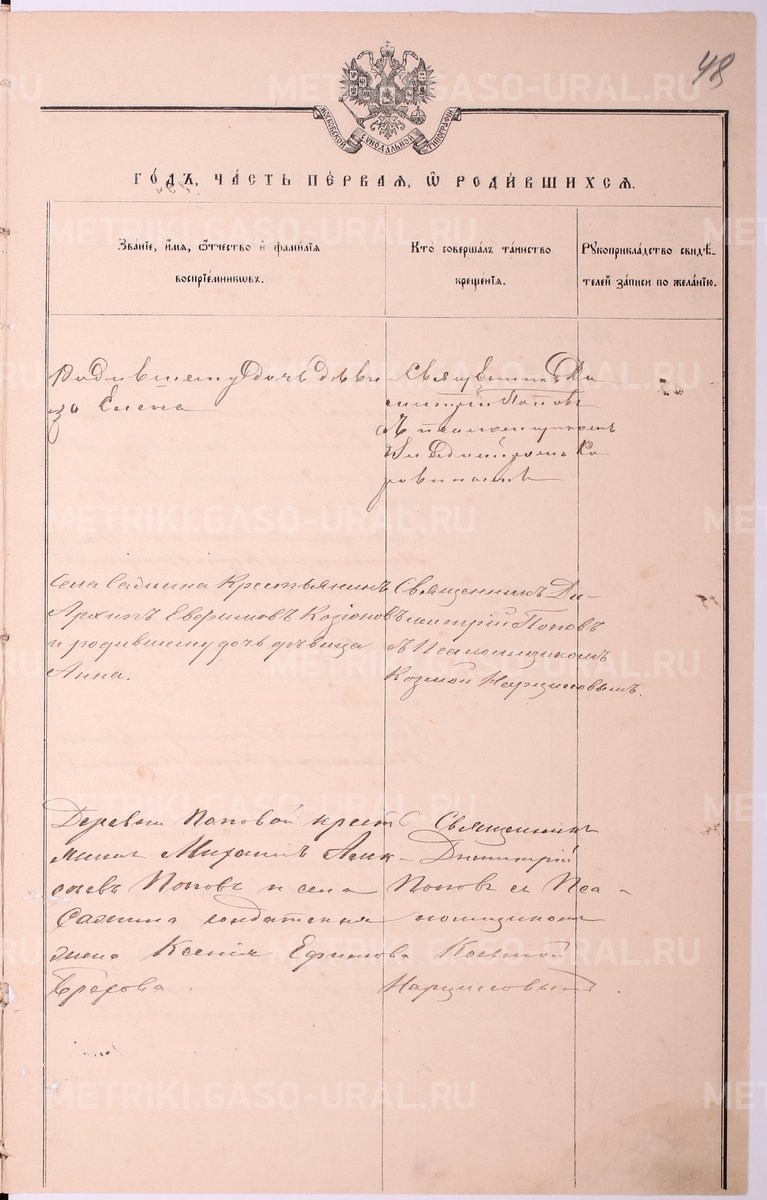 48
МОСКОВСКОЙ СѴНОДАЛЬНОЙ ТИПОГРАФІИ
ГО́ДЪ, ЧА́СТЬ ПЕ́РВАѦ, Ѡ҆ РОДИ́ВШИХСѦ.
Зва́ніе, и҆́мѧ, ѻ҆́тчество и҆ фами́лїѧ воспрїе́мникѡвъ.
Кто̀ соверша́лъ та́инство креще́нїѧ.
Рꙋкоприкла́дство свидѣ́телей за́писи по жела́нїю.
Родившему дочь дѣви-
ца Елена
Священникъ Ди-
митрій Поповъ
съ псаломщикомъ
Села Садкина Крестьянинъ
Архипъ Евфимовъ Козіоновъ
и родившему дочь дѣвица
Анна.
Священникъ Ди-
митрій Поповъ
съ Псаломщикомъ
Козмой Нарциссовымъ.
Деревни Поповой крест
Михаилъ Алек-
сѣевъ Поповъ и села
солдатская
жена Ксенія Ефимова
Священникъ
Димитрій
Поповъ съ Пса-
ломщикомъ
Космой
Нарциссовымъ.
METRIKI.GASO-URAL.RU